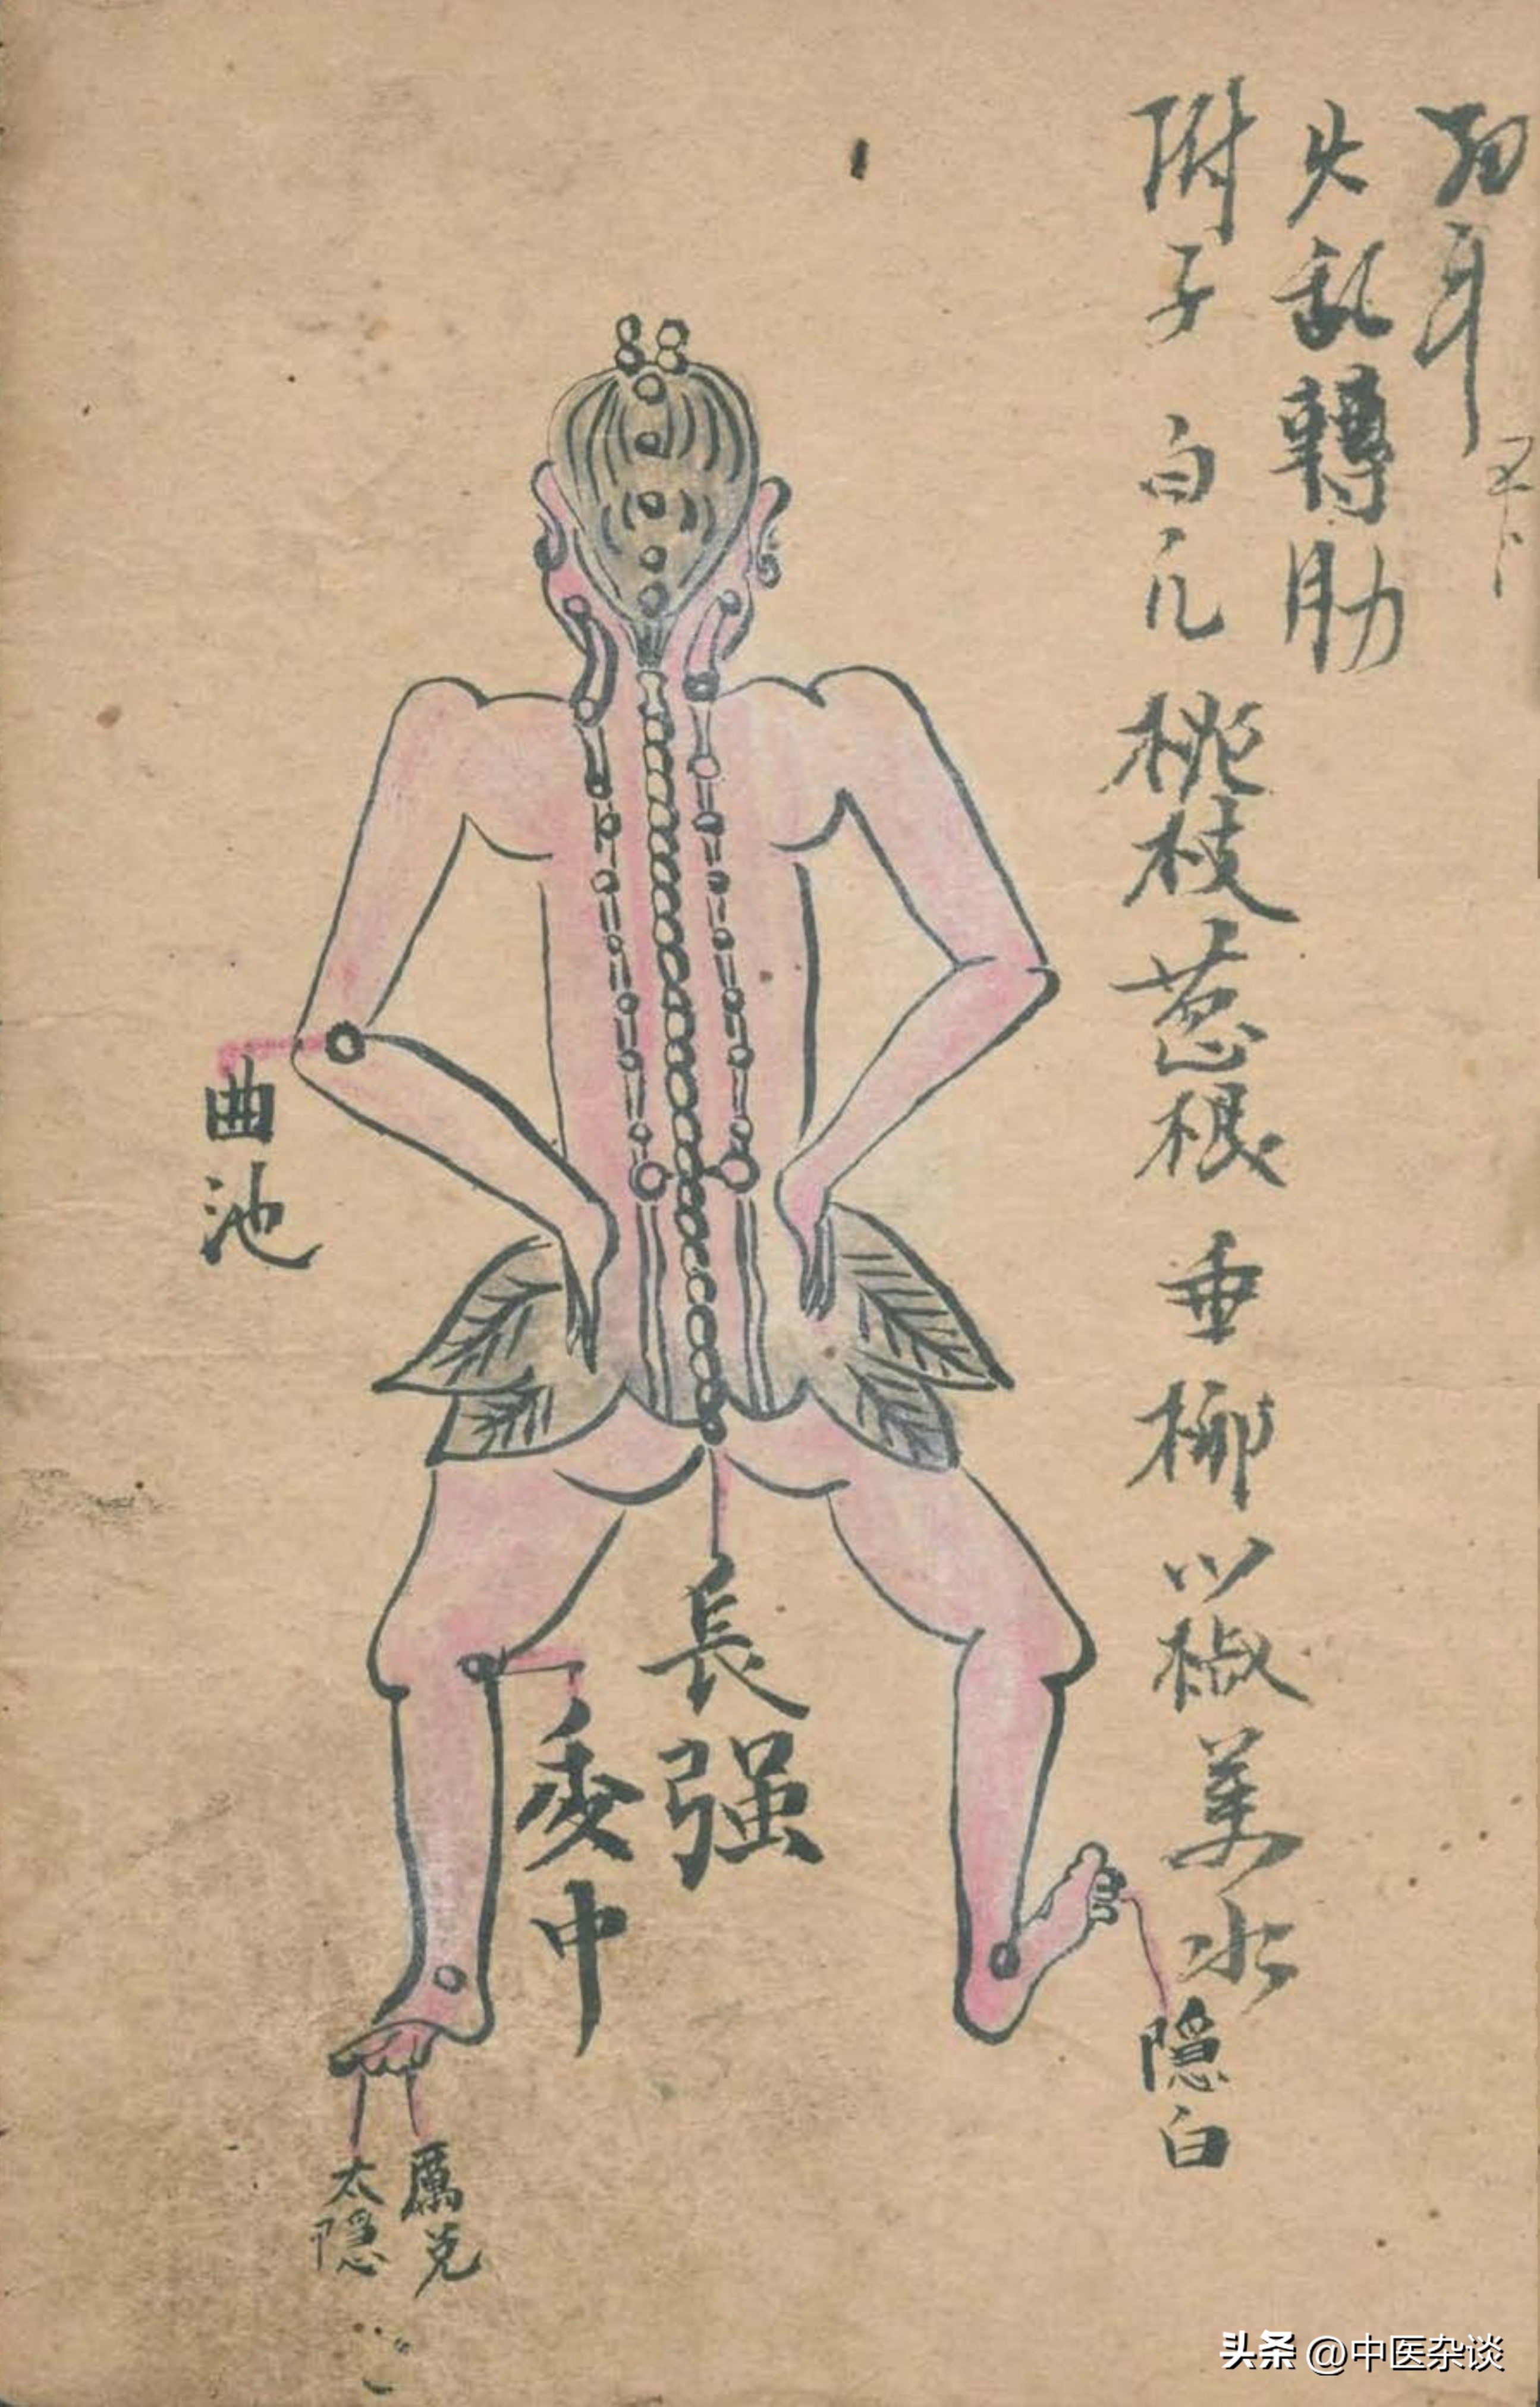 火乱轉肋
附子 白凡 桃枝葱根 垂柳 川椒 美水
曲池
長强
委中
隠白
厲兑
太隠
头条 @中医杂谈